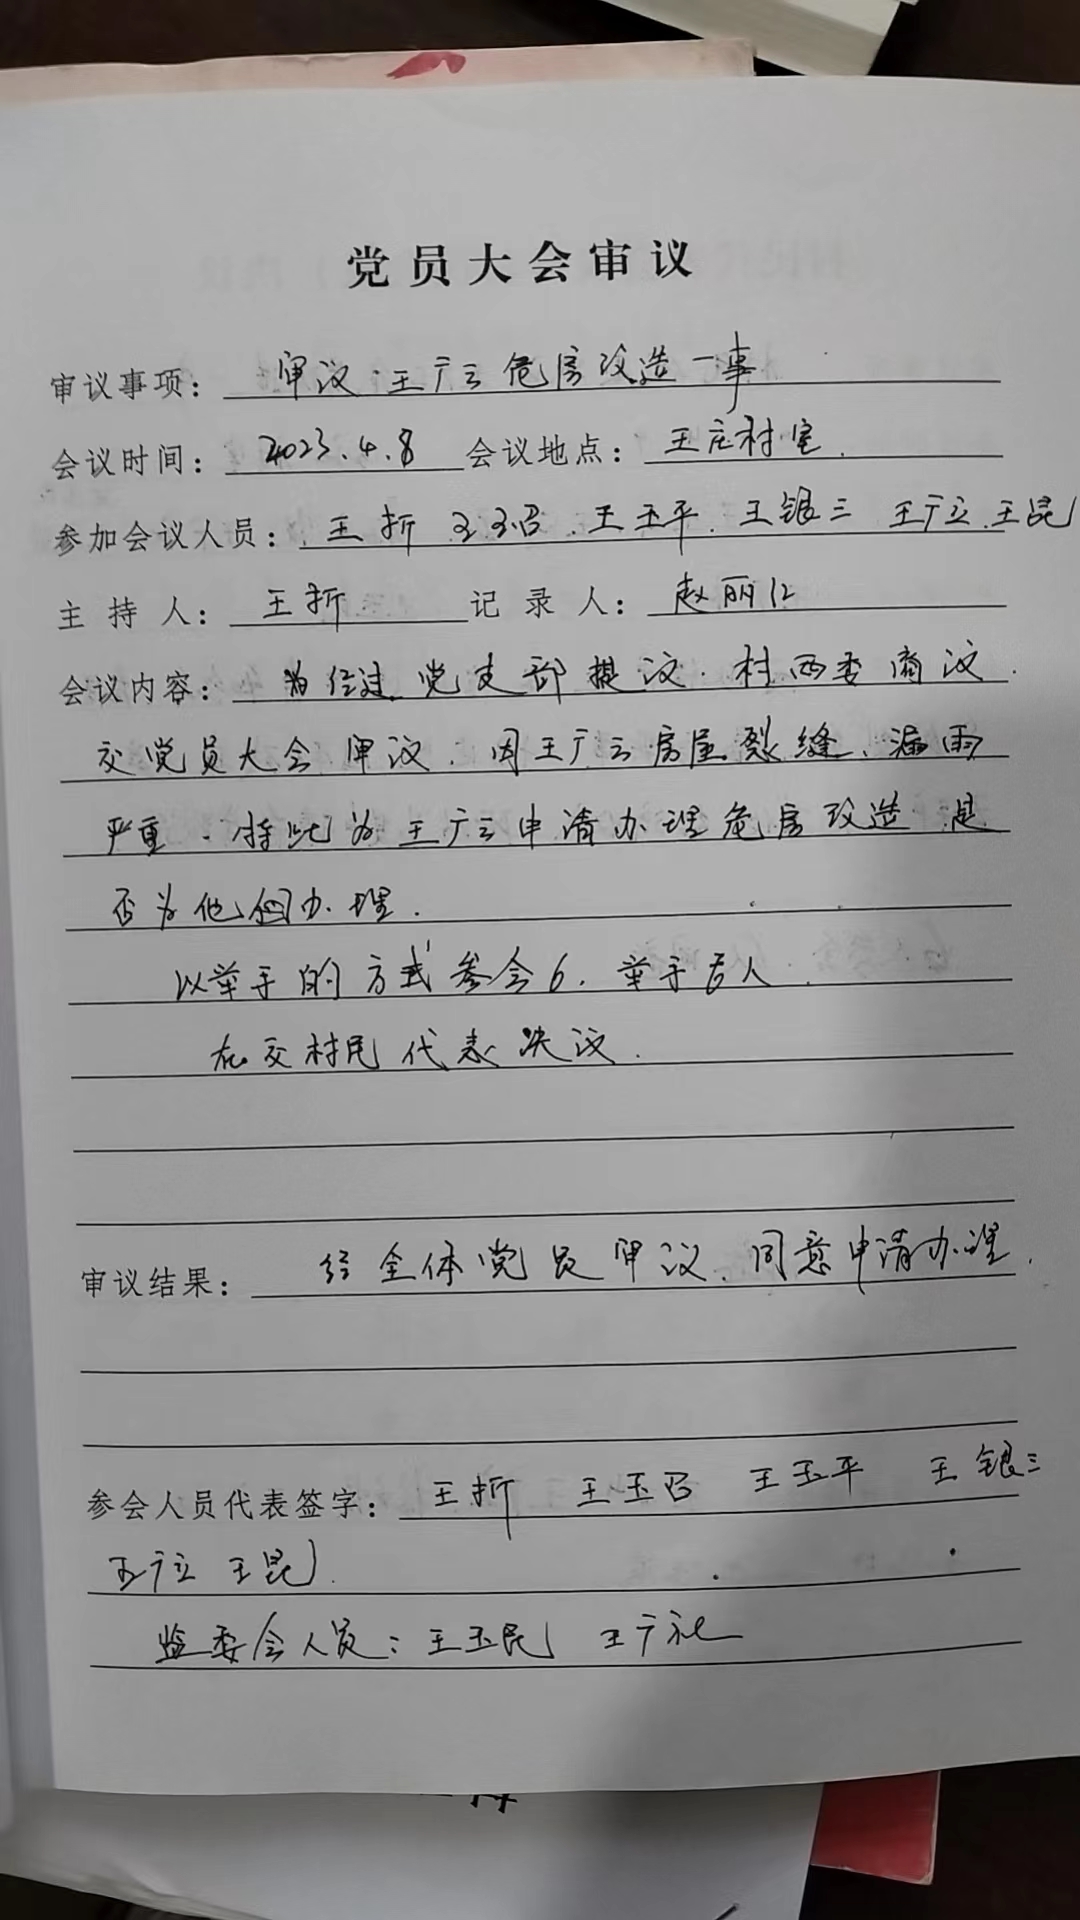 党员大会审议
审议事项: 审议.王广云危房改造一事
会议时间: 2023.4.8 会议地点: 王庄村室.
参加会议人员: 王折 王玉召.王玉平.王银三 王广立.王昆
主持人: 王折 记录人: 赵丽红
会议内容: 为经过党支部提议.村两委商议.
交党员大会审议.因王广云房屋裂缝、漏雨
严重.特此为王广云申请办理危房改造.是
否为他们办理.
以举手的方式参会6.举手 人.
在交村民代表决议.
审议结果: 经全体党员审议、同意申请办理.
参会人员代表签字: 王折 王玉召 王玉平 王银三
王广立 王昆.
监委会人员: 王玉民 王广礼